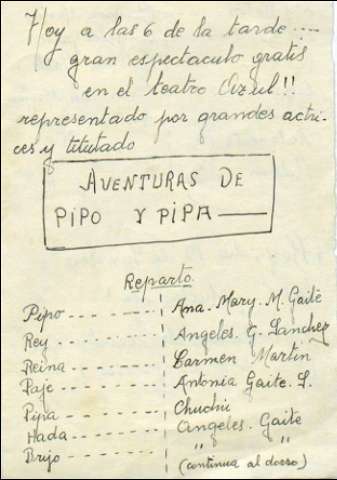 Hoy a las 6 de la tarde....
gran espectaculo gratis
en el teatro Azul!!
representado por grandes actri-
ces y titutado
AVENTURAS DE
PIPO Y PIPA
Reparto.
Pipo - - - - - - - Ana. Mary. M. Gaite
Rey - - - - - - - Angeles. G. Sanchez
Reina - - - - - - - Carmen Martin
Paje - - - - - - - Antonia Gaite. S.
Pipa - - - - - - - Chuchú
Hada - - - - - - - Angeles. Gaite
Brujo - - - - - - - " "
(continua al dorso)